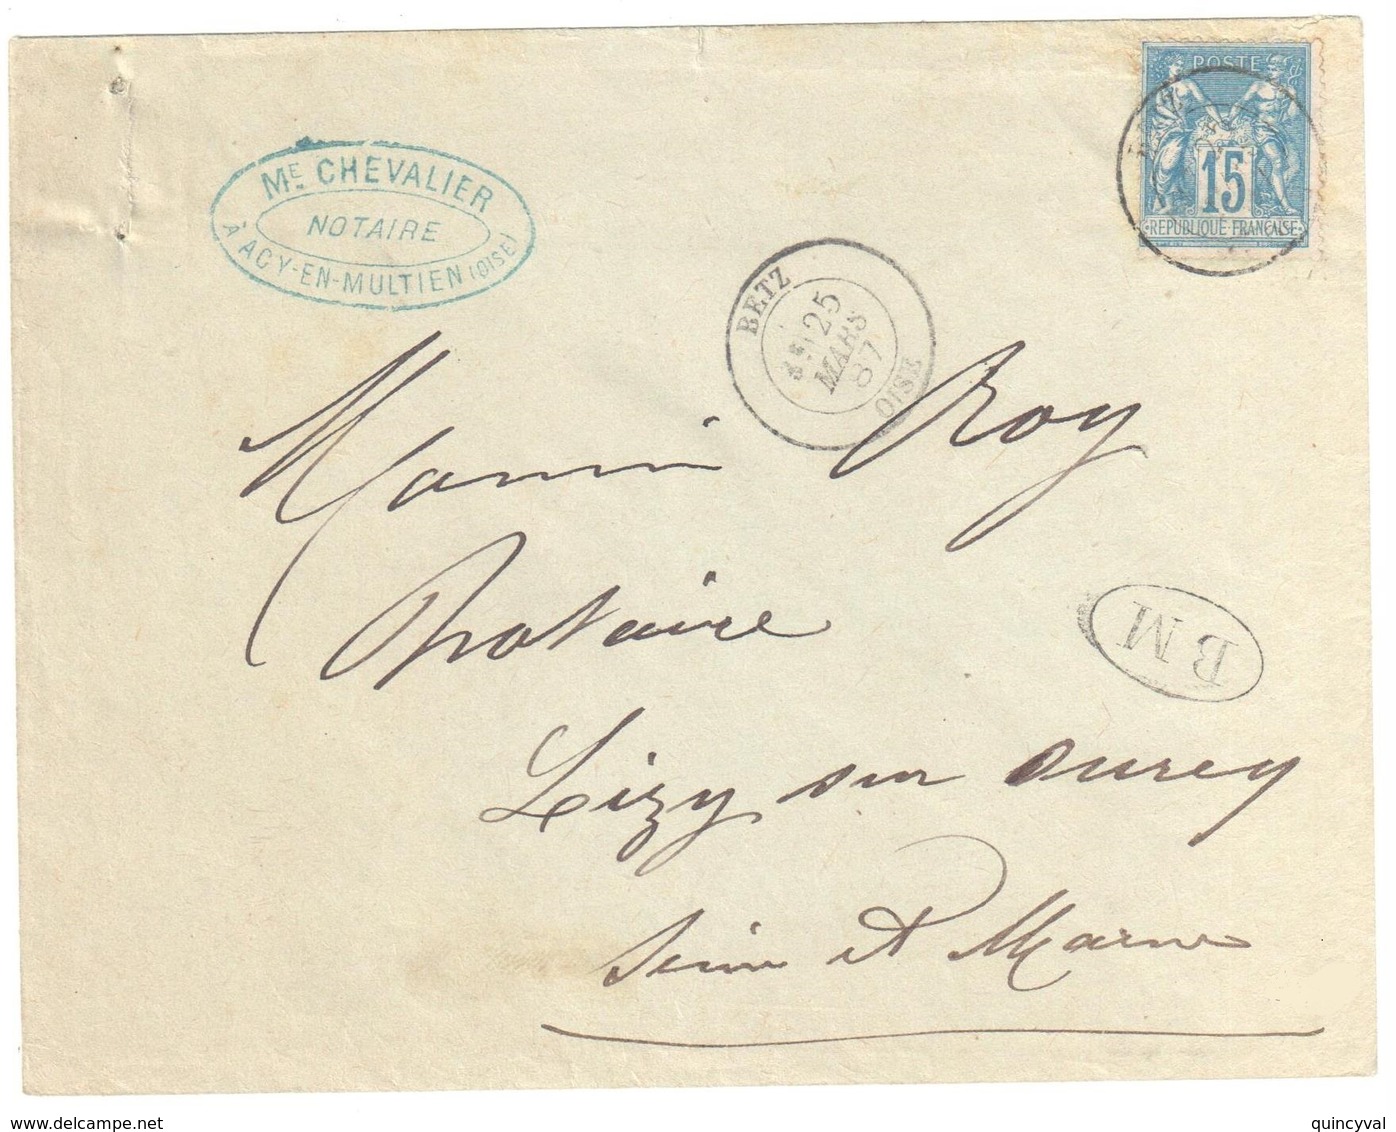 POSTE
15
RÉPUBLIQUE FRANÇAISE
ME CHEVALIER
NOTAIRE
À ACY-EN-MULTIEN (OISE)
BETZ
25
MARS
87
OISE
Roy
Notaire
BM
Lizy sur Ourcq
Seine et Marne
www.delcampe.net
quincyval